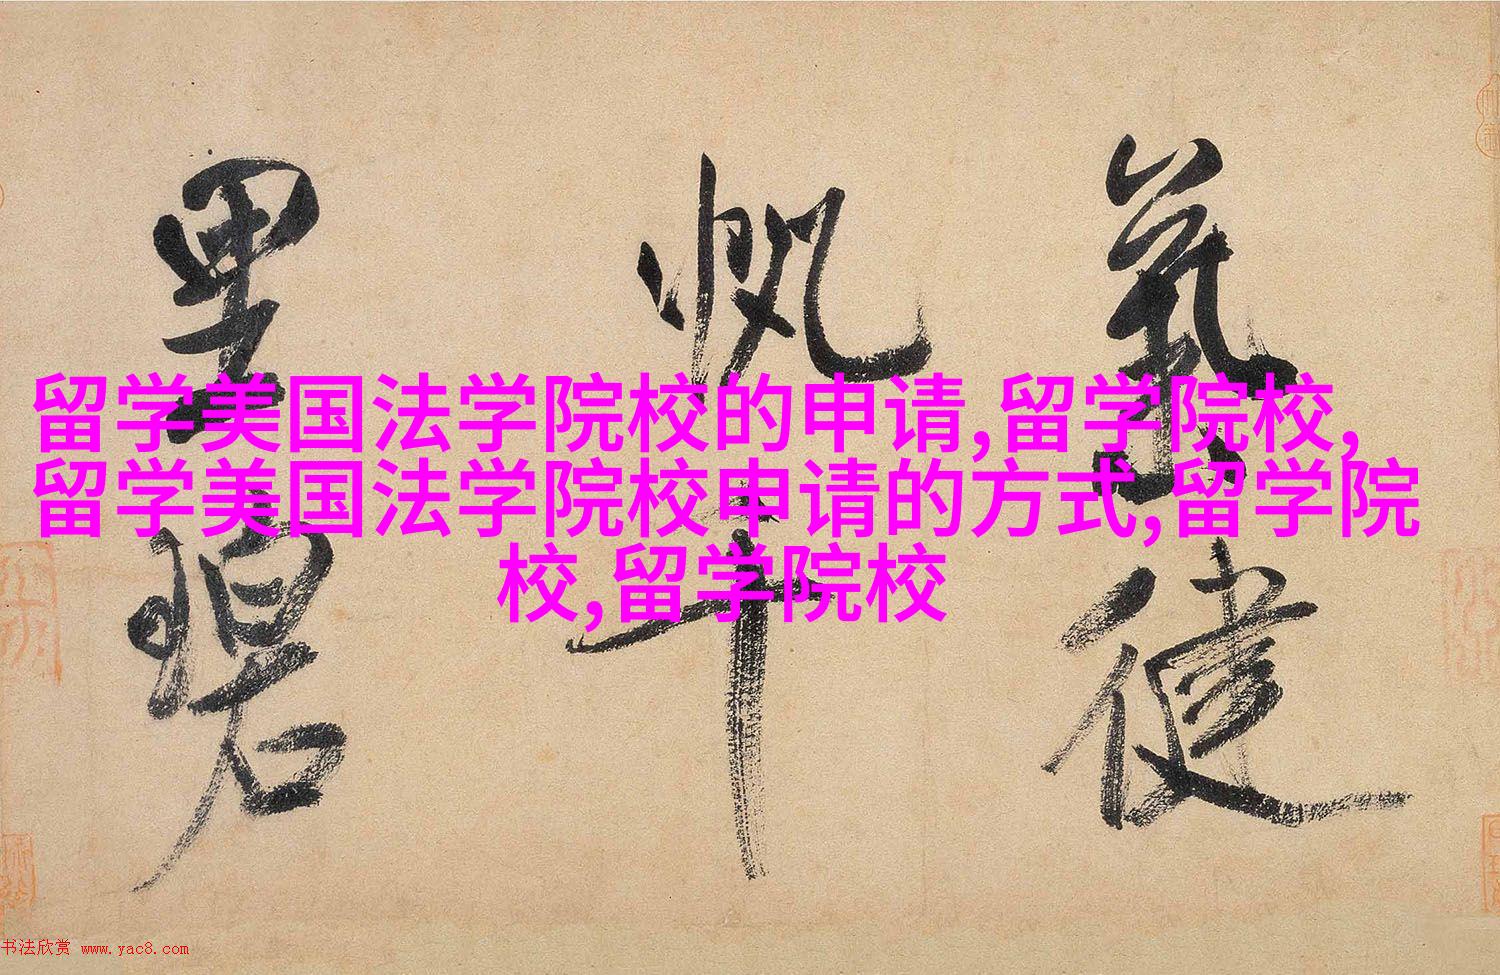 留学美国法学院校的申请,留学院校,
留学美国法学院校申请的方式,留学院
校,留学院校
气健
帆千
里碧
书法欣赏 www.yac8.com